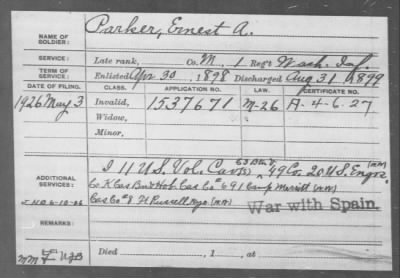 NAME OF SOLDIER: Parker, Ernest A.
SERVICE: Late rank, Co. M. 1 Reg't Wash. Inf.
TERM OF SERVICE: Enlisted Apr 30, 1898 Discharged Aug 31, 1899
DATE OF FILING. CLASS. APPLICATION NO. LAW. CERTIFICATE NO.
1926 May 3 Invalid, 1537671 M-26 A-4-6-27
Widow,
Minor,
ADDITIONAL SERVICES: I 11 U.S. Vol. Cav 49 Co. 20 U.S. Engrs.
Co. K Cas Co # 691 Camp Merritt
Cas Co # 8 Ft Russell Wyo
War with Spain.
REMARKS:
Died , 1 , at